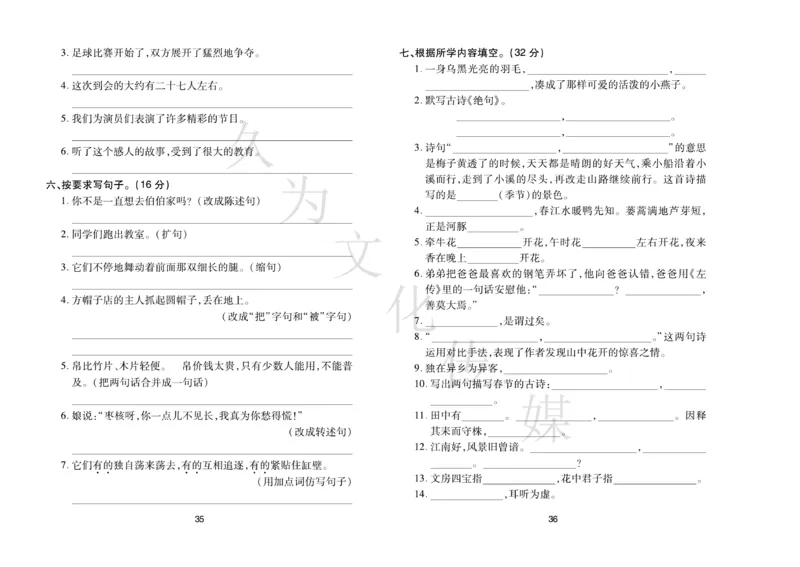 3. 足球比赛开始了,双方展开了猛烈地争夺。
4. 这次到会的大约有二十七人左右。
5. 我们为演员们表演了许多精彩的节目。
6. 听了这个感人的故事,受到了很大的教育。
六、按要求写句子。(16 分)
1. 你不是一直想去伯伯家吗?(改成陈述句)
2. 同学们跑出教室。(扩句)
3. 它们不停地舞动着前面那双细长的腿。(缩句)
4. 方帽子店的主人抓起圆帽子,丢在地上。
(改成“把”字句和“被”字句)
5. 帛比竹片、木片轻便。 帛价钱太贵,只有少数人能用,不能普
及。(把两句话合并成一句话)
6. 娘说:“枣核呀,你一点儿不见长,我真为你愁得慌!”
(改成转述句)
7. 它们有的独自荡来荡去,有的互相追逐,有的紧贴住缸壁。
(用加点词仿写句子)
35
七、根据所学内容填空。(32 分)
1. 一身乌黑光亮的羽毛,____,____
____,凑成了那样可爱的活泼的小燕子。
2. 默写古诗《绝句》。
____,____。
____,____。
3. 诗句“____,____”的意思
是梅子黄透了的时候,天天都是晴朗的好天气,乘小船沿着小
溪而行,走到了小溪的尽头,再改走山路继续前行。这首诗描
写的是____(季节)的景色。
4. ____,春江水暖鸭先知。蒌蒿满地芦芽短,
正是河豚____。
5. 牵牛花____开花,午时花____左右开花,夜来
香在晚上____开花。
6. 弟弟把爸爸最喜欢的钢笔弄坏了,他向爸爸认错,爸爸用《左
传》里的一句话安慰他:“____? ____,
善莫大焉。”
7. ____,是谓过矣。
8. “____,____。”这两句诗
运用对比手法,表现了作者发现山中花开的惊喜之情。
9. 独在异乡为异客,____。
10. 写出两句描写春节的古诗:____,____
____。
11. 田中有____。____,____。因释
其耒而守株,____。
12. 江南好,风景旧曾谙。____,____
____。____?
13. 文房四宝指____,花中君子指____。
14. ____,耳听为虚。
36
久为文化传媒